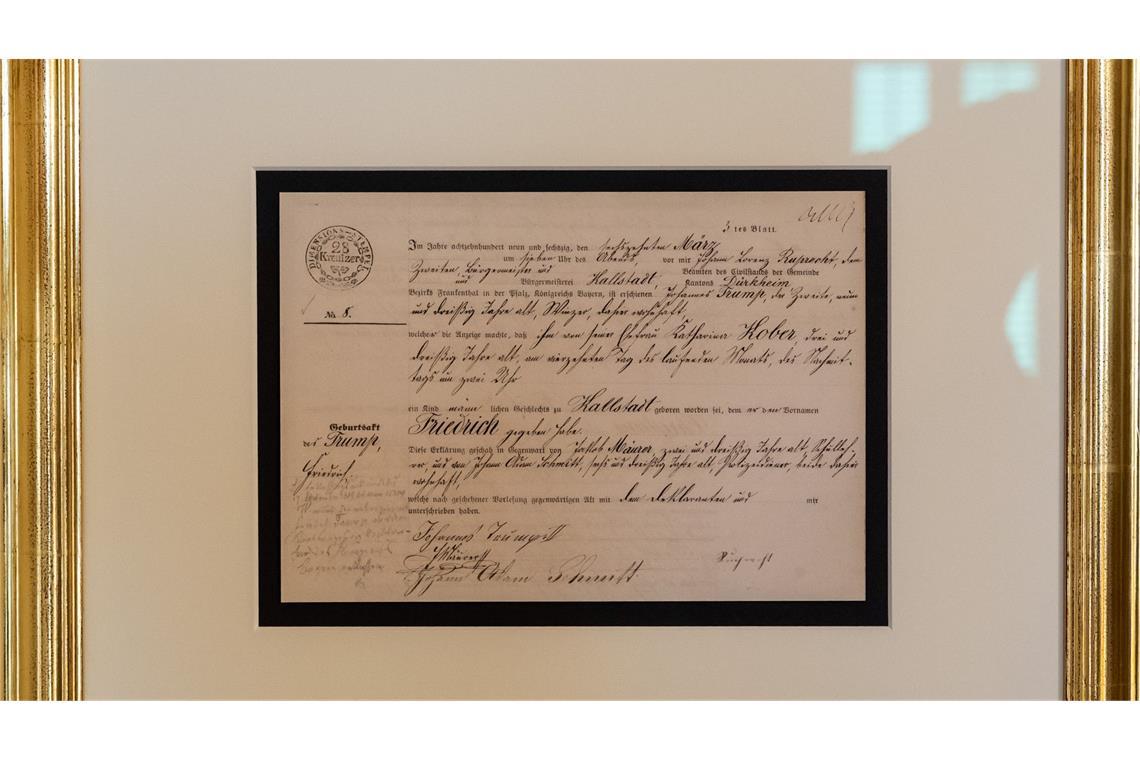 5 tes Blatt.
DIMENSIONS-STEMPEL
28
Kreutzer
No. 8.
Im Jahre achtzehnhundert neun und sechzig, den sechszehnten März
um sieben Uhr des Abends, vor mir Johann Lorenz Ruprecht, dem
Zweiten, Bürgermeister und Beamten des Civilstands der Gemeinde
und Bürgermeisterei Kallstadt, Kantons Dürkheim
Bezirks Frankenthal in der Pfalz, Königreichs Bayern, ist erschienen Johannes Trump, der Zweite, neun
und dreißig Jahre alt, Winzer, daher wohnhaft,
welcher die Anzeige machte, daß ihm von seiner Ehefrau Katharina Kober, drei und
dreißig Jahre alt, am vierzehnten Tag des laufenden Monats, des Nachmit-
tags um zwei Uhr
ein Kind männlichen Geschlechts zu Kallstadt geboren worden sei, dem er den Vornamen
Friedrich gegeben habe.
Geburtsakt
des Trump,
Friedrich
Diese Erklärung geschah in Gegenwart von Jakob Mäurer, zwei und dreißig Jahre alt, Schulleh-
rer, und von Johann Adam Schmitt, sechs und dreißig Jahre alt, Polizeidiener, beide daher
wohnhaft,
welche nach geschehener Vorlesung gegenwärtigen Akt mit dem Deklaranten und mir
unterschrieben haben.
Johannes Trump II
J Mäurer
Johann Adam Schmitt
Ruprecht